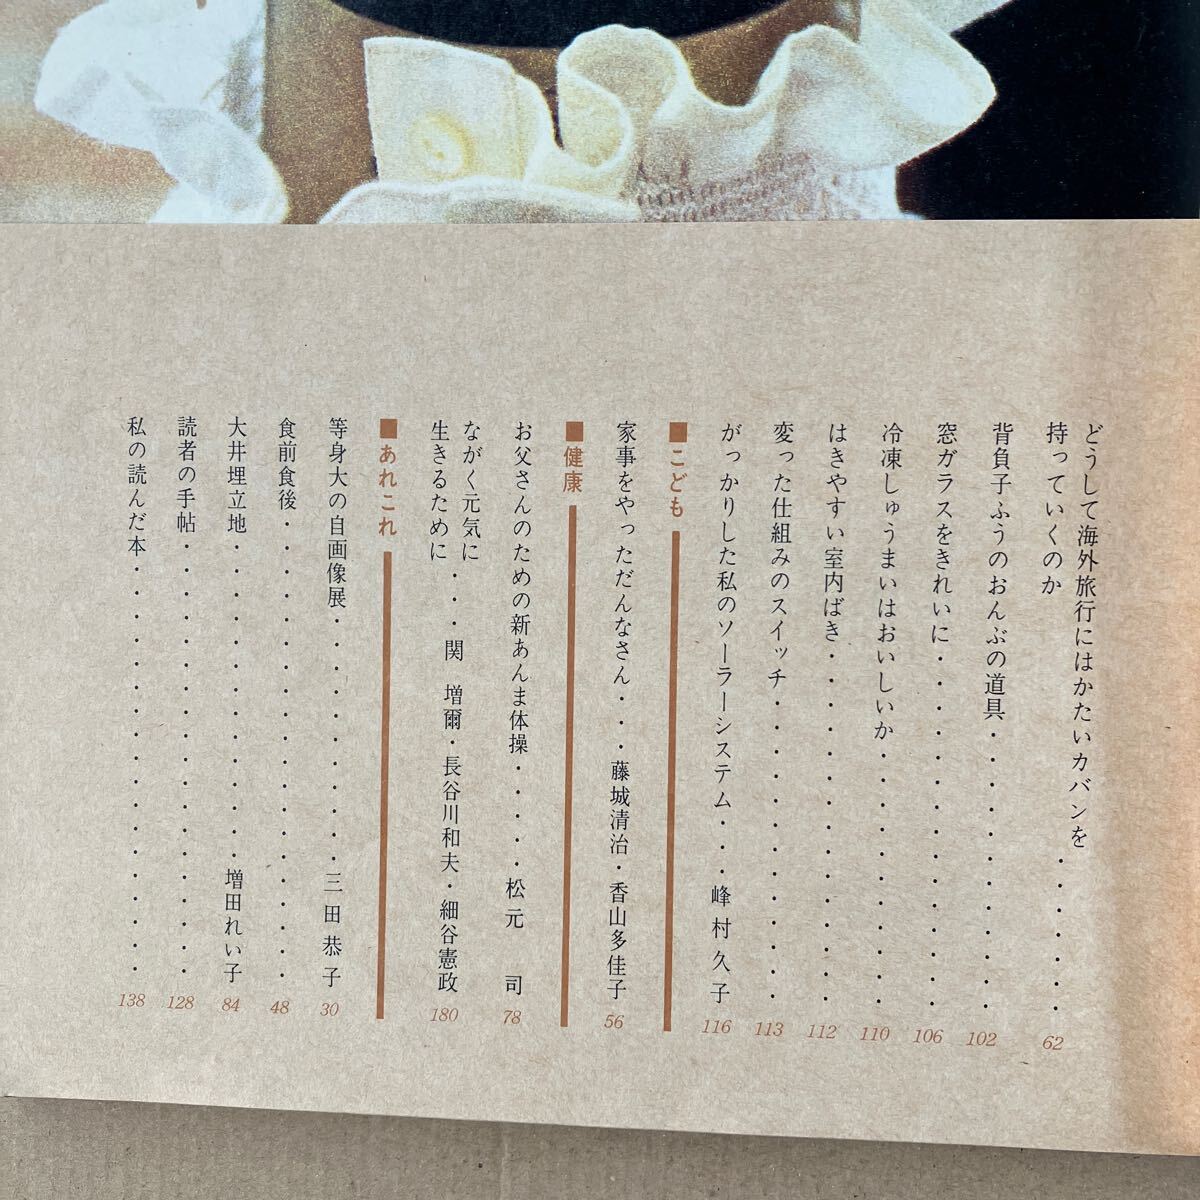 どうして海外旅行にはかたいカバンを
持っていくのか・・・・・・・62
背負子ふうのおんぶの道具・・・・・・・・・・・・102
窓ガラスをきれいに・・・・・・・・・・・・・・106
冷凍しゅうまいはおいしいか・・・・・・・・・・・110
はきやすい室内ばき・・・・・・・・・・・・・・112
変った仕組みのスイッチ・・・・・・・・・・・・・113
がっかりした私のソーラーシステム・・・峰村久子 116
■こども
家事をやっただんなさん・・・藤城清治・香山多佳子 56
■健康
お父さんのための新あんま体操・・・・・松元 司 78
ながく元気に
生きるために・・・関 増爾・長谷川和夫・細谷憲政 180
■あれこれ
等身大の自画像展・・・・・・・・・・三田恭子 30
食前食後・・・・・・・・・・・・・・・・・・48
大井埋立地・・・・・・・・・・・・・増田れい子 84
読者の手帖・・・・・・・・・・・・・・・・・128
私の読んだ本・・・・・・・・・・・・・・・・138